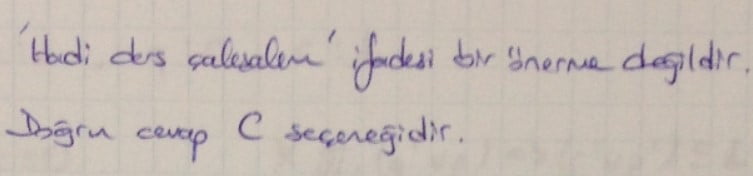 'Hadi ders çalışalım' ifadesi bir önerme değildir.
Doğru cevap C seçeneğidir.